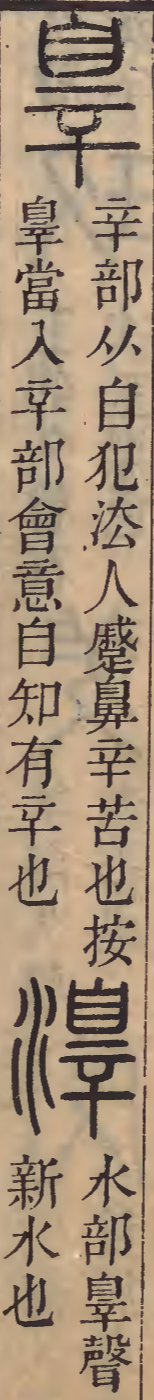 辠
辛部从自犯㳒人蹙鼻辛苦也按
辠當入䇂部會意自知有䇂也
滜
水部辠聲
新水也